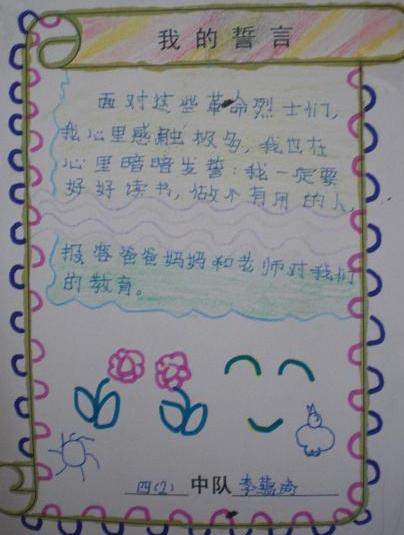 我的誓言
面对这些革命烈士们,
我心里感触极多,我也在
心里暗暗发誓:我一定要
好好读书,做个有用的人,
报答爸爸妈妈和老师对我们
的教育。
四(2) 中队 李